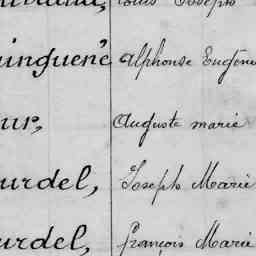 Louis Joseph
inguené Alphonse Eugène
ur, Auguste marie
urdel, Joseph Marie
urdel, François Marie